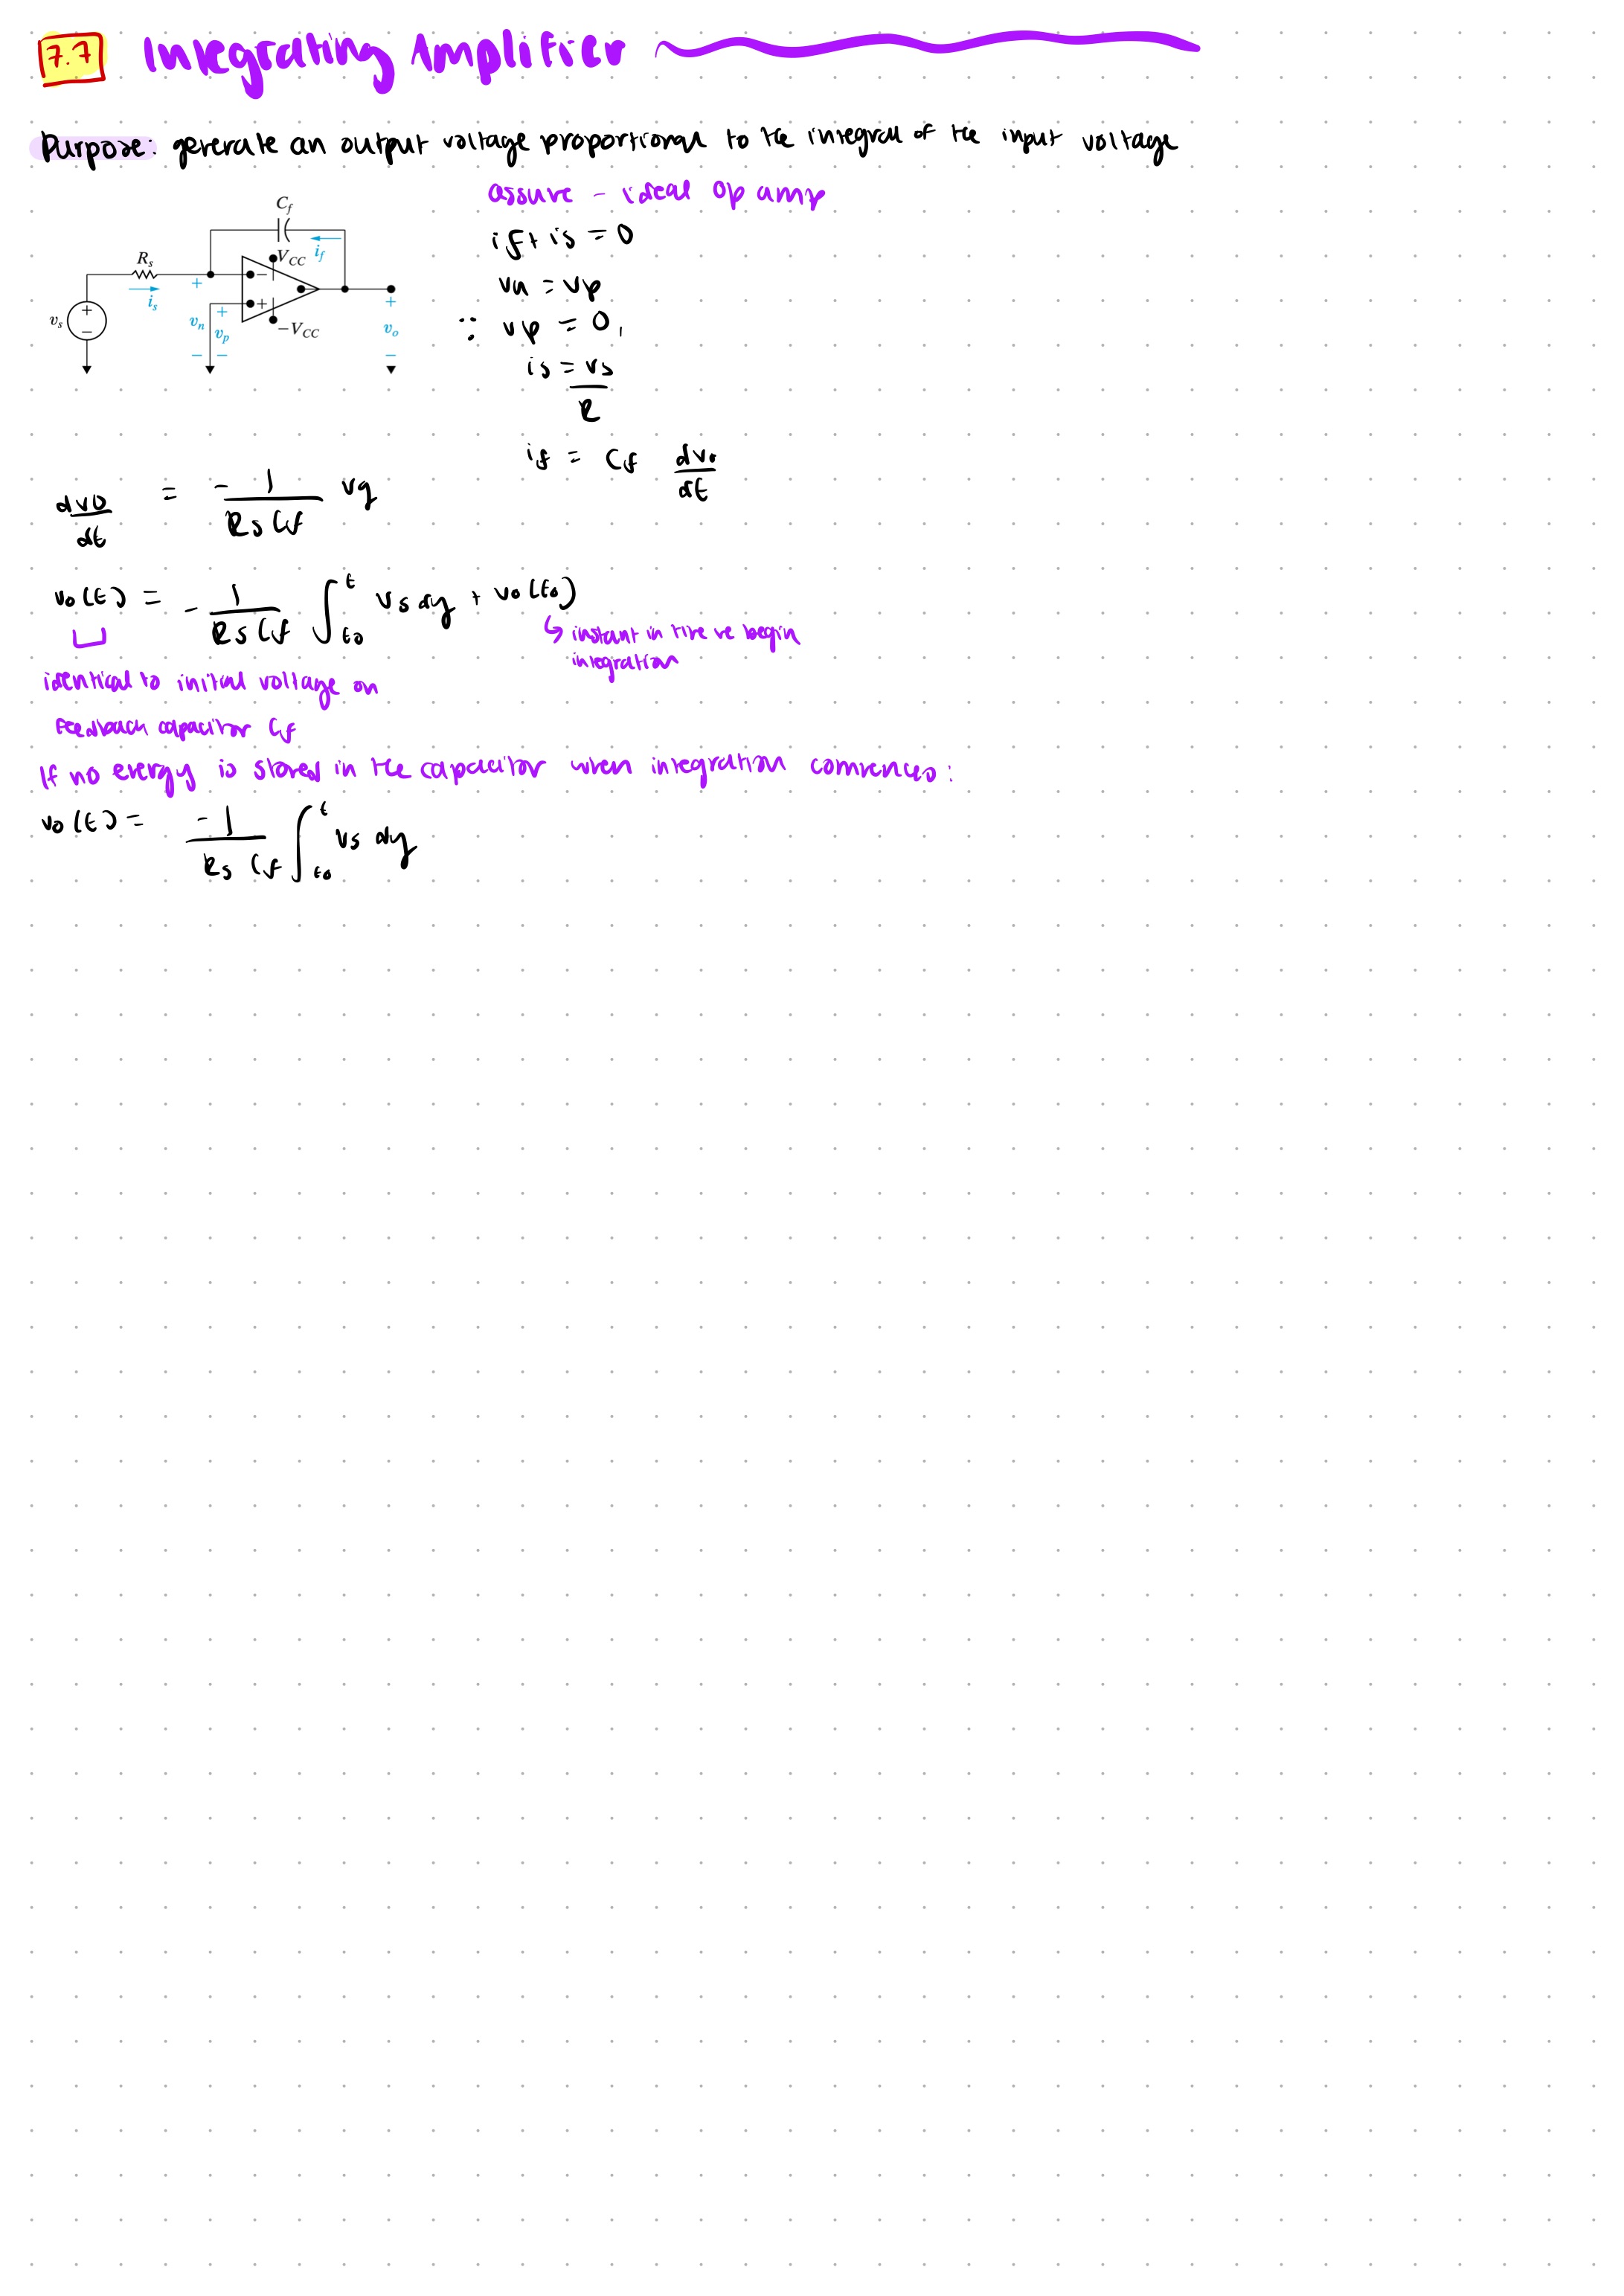 7.7 Integrating Amplifier
Purpose: generate an output voltage proportional to the integral of the input voltage
assume - ideal op amp
C_f
V_CC
i_f
R_s
i_s
v_s
+
−
−
+
+
−
v_n
+
v_p
−
−V_CC
+
v_o
−
if + is = 0
vn = vp
∵ vp = 0,
is = vs / R
if = Cf dvo/dt
dvo/dt = -1/(Rs Cf) vg
vo(t) = -1/(Rs Cf) ∫_{to}^{t} vs dy + vo(to)
↳ instant in time we begin
integration
identical to initial voltage on
feedback capacitor Cf
If no energy is stored in the capacitor when integration commences:
vo(t) = -1/(Rs Cf) ∫_{to}^{t} vs dy